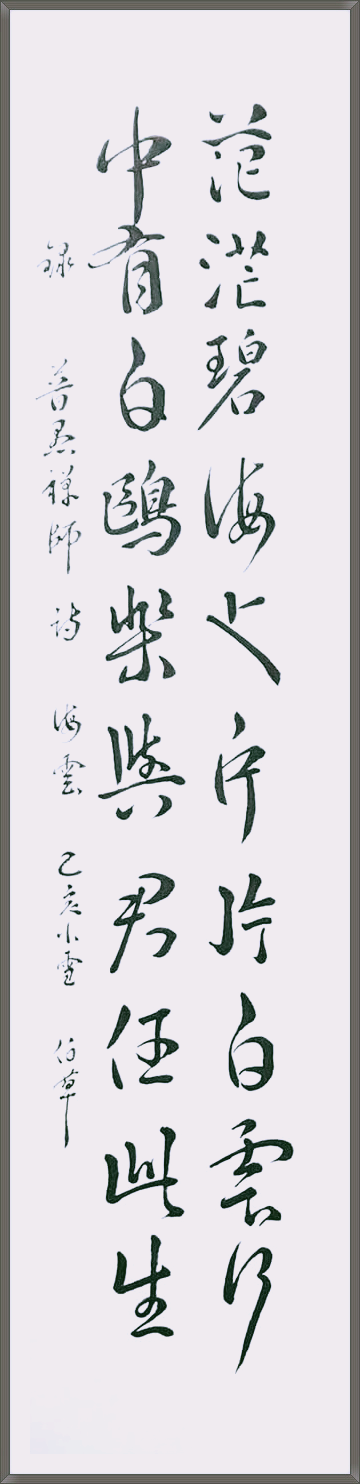 茫茫碧海上片片白雲行
中有白鷗樂與君任此生
錄 普愚禪師 詩 海雲 己亥小雪 伯草